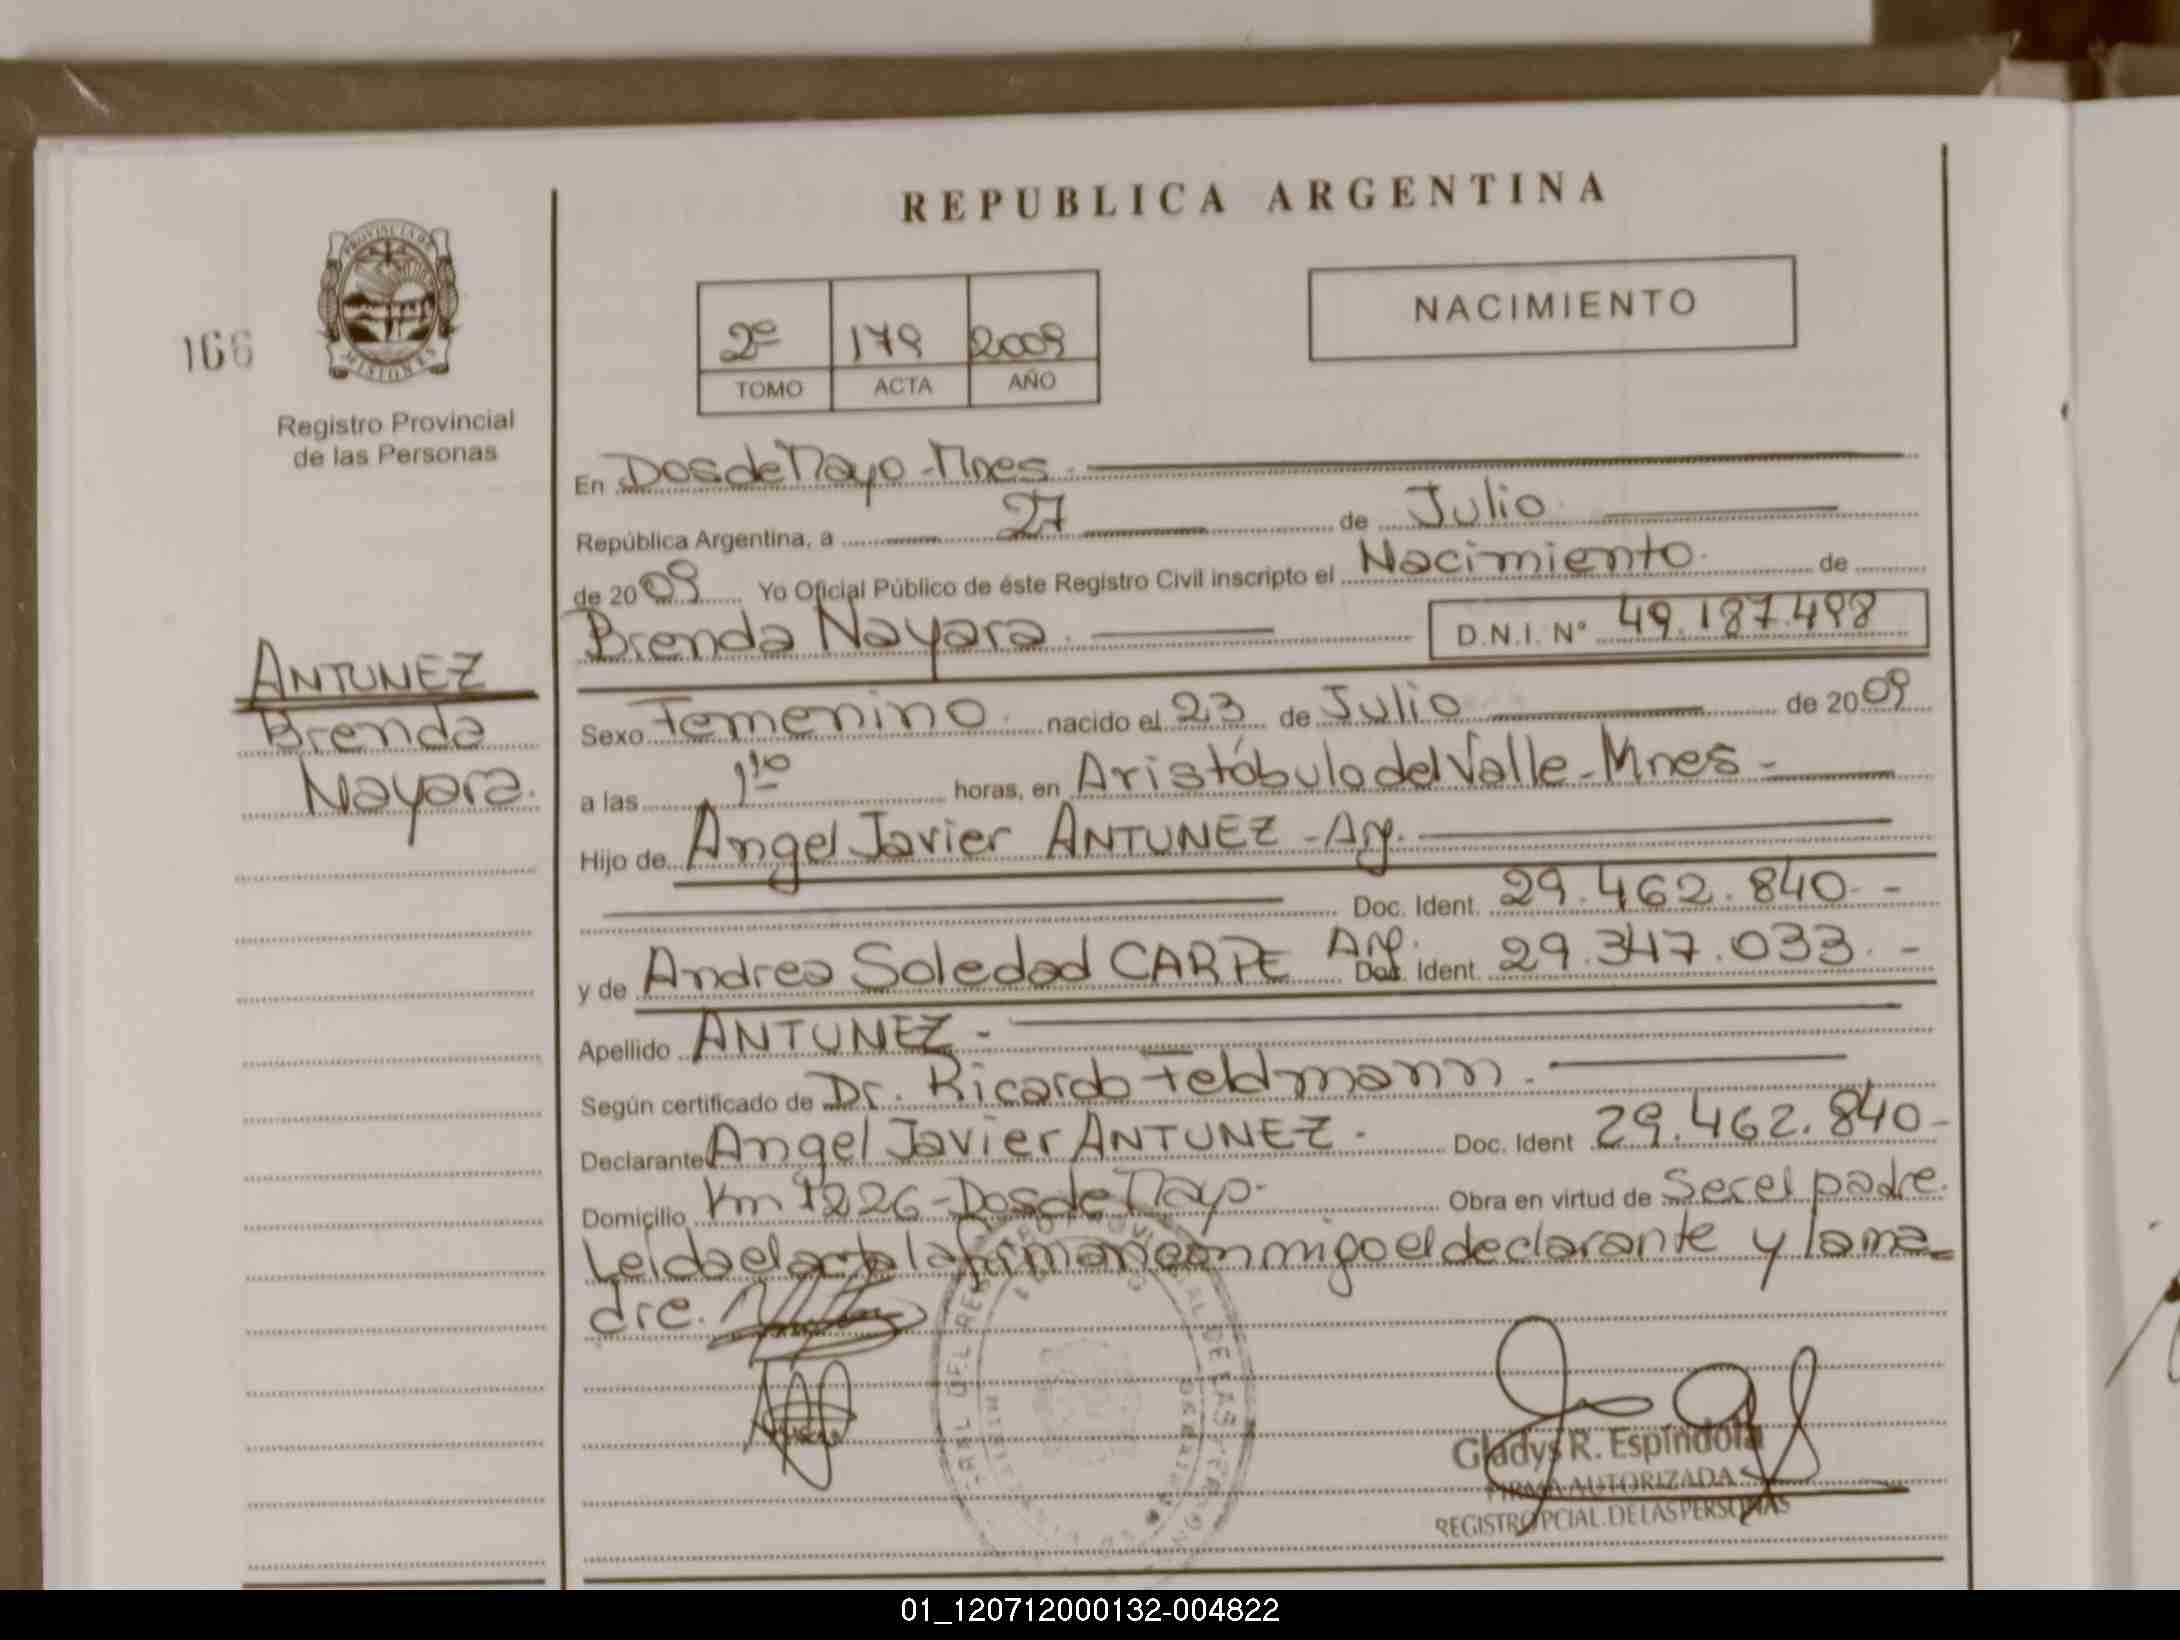 REPUBLICA ARGENTINA
PROVINCIA DE
MISIONES
166
Registro Provincial
de las Personas
2º 179 2009
TOMO ACTA AÑO
NACIMIENTO
En Dos de Mayo - Mnes.
República Argentina, a 27 de Julio
de 2009 Yo Oficial Público de éste Registro Civil inscripto el Nacimiento de
Brenda Nayara. D.N.I. Nº 49.187.498
ANTUNEZ
Brenda
Nayara.
Sexo Femenino nacido el 23 de Julio de 2009
a las 1¹⁰ horas, en Aristóbulo del Valle - Mnes -
Hijo de Angel Javier ANTUNEZ - Arg.
Doc. Ident. 29.462.840 -
y de Andrea Soledad CARPE Arg. Doc. Ident. 29.347.033. -
Apellido ANTUNEZ -
Según certificado de Dr. Ricardo Feldmann.
Declarante Angel Javier ANTUNEZ. Doc. Ident 29.462.840 -
Domicilio Km 1226 - Dos de Mayo - Obra en virtud de ser el padre.
Leida el acta la firman conmigo el declarante y la ma-
dre.
Gladys R. Espíndola
FIRMA AUTORIZADA
REGISTRO PCIAL. DE LAS PERSONAS
01_120712000132-004822